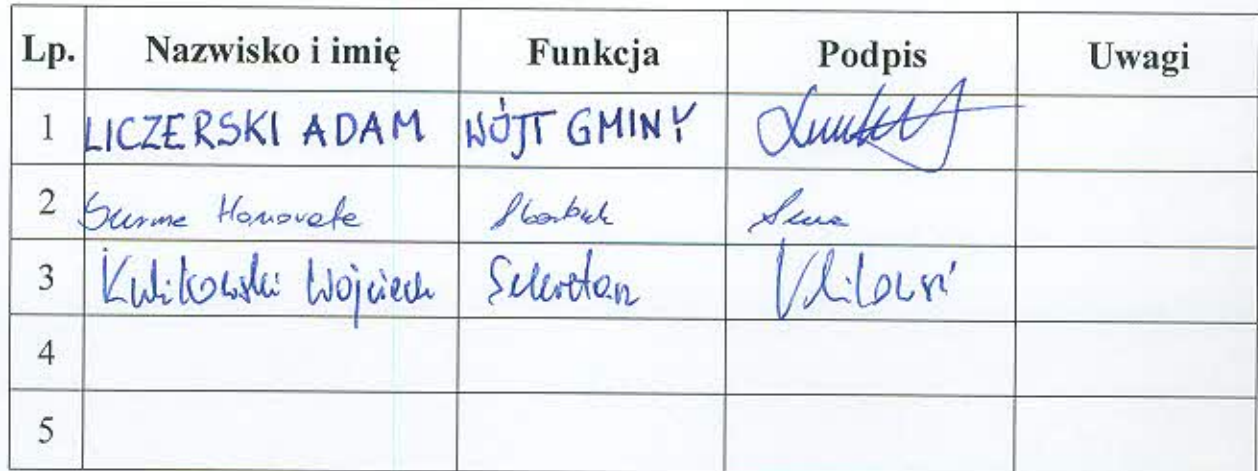 Lp. Nazwisko i imię Funkcja Podpis Uwagi
1 LICZERSKI ADAM WÓJT GMINY
2 Honorata Skarbnik
3 Kulikowski Wojciech Sekretarz
4
5